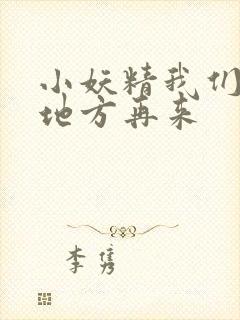 小妖精我们
地方再来
李隽